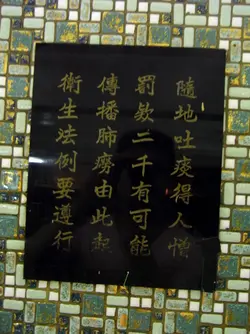 隨地吐痰得人憎
罰款二千有可能
傳播肺癆由此起
衛生法例要遵行